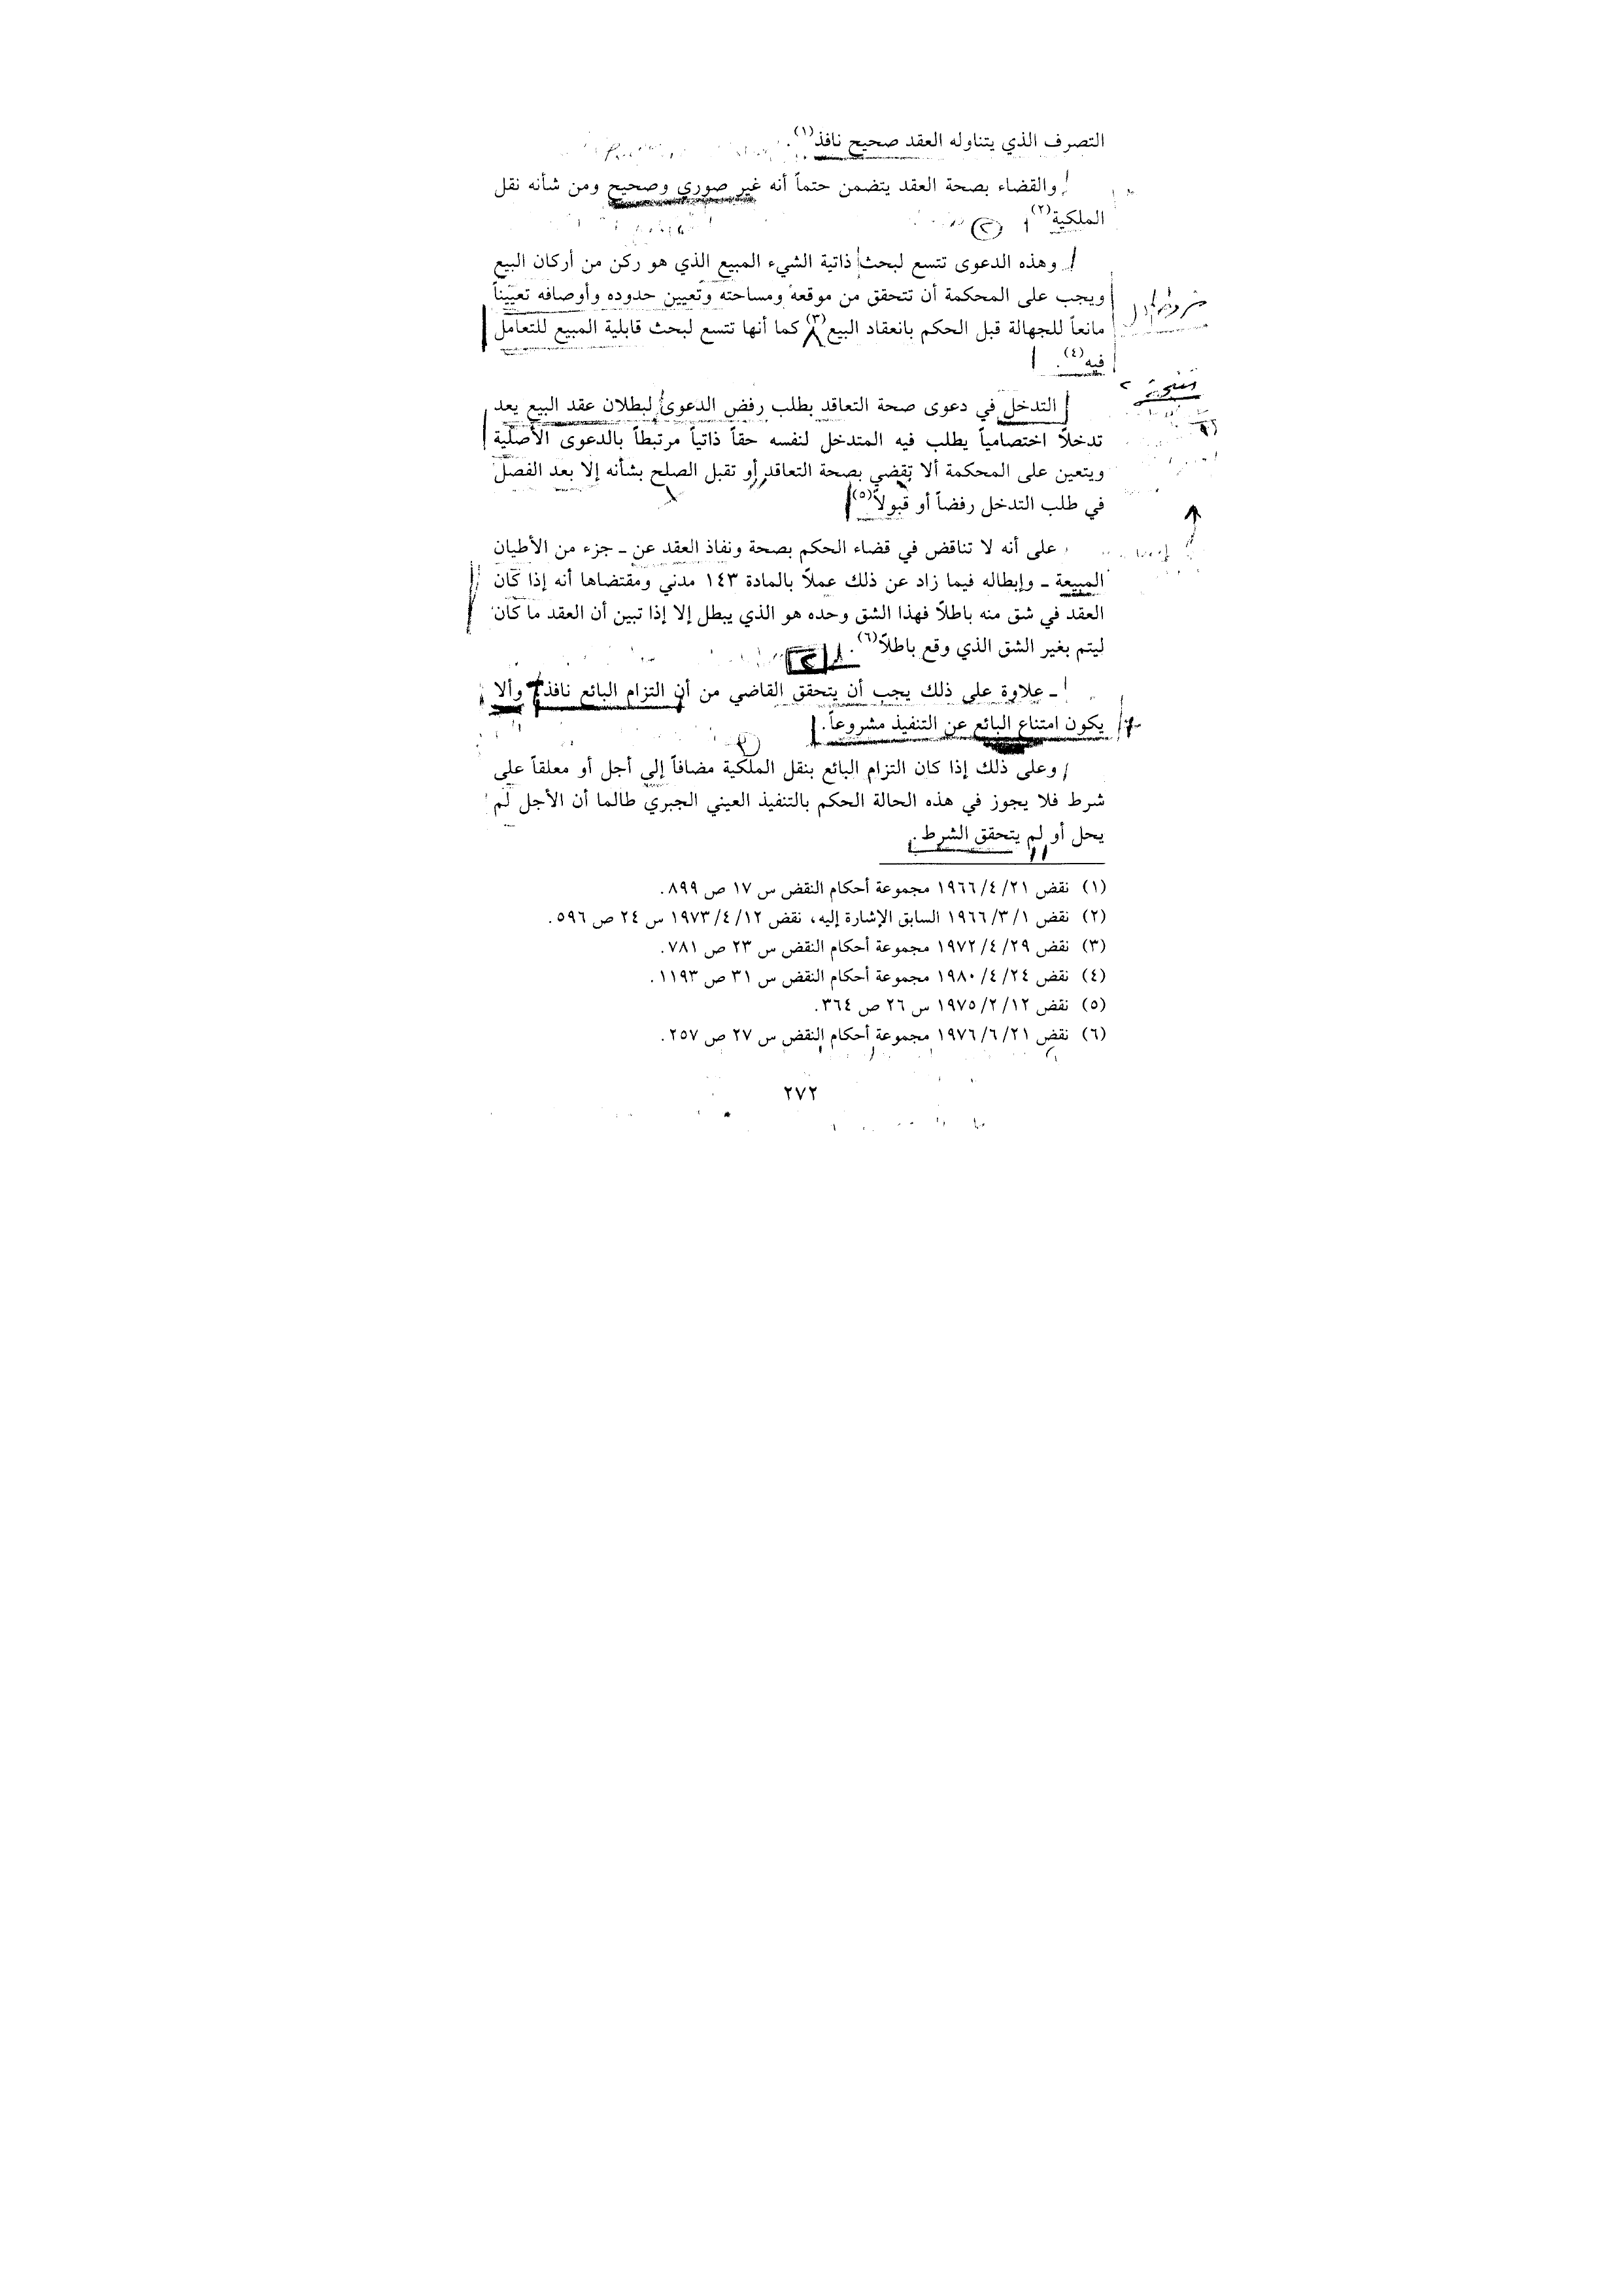 التصرف الذي يتناوله العقد صحيح نافذ(١).
والقضاء بصحة العقد يتضمن حتماً أنه غير صوري وصحيح ومن شأنه نقل
الملكية(٢)
وهذه الدعوى تتسع لبحث ذاتية الشيء المبيع الذي هو ركن من أركان البيع
ويجب على المحكمة أن تتحقق من موقعه ومساحته وتعيين حدوده وأوصافه تعييناً
مانعاً للجهالة قبل الحكم بانعقاد البيع(٣) كما أنها تتسع لبحث قابلية المبيع للتعامل
فيه(٤).
التدخل في دعوى صحة التعاقد بطلب رفض الدعوى لبطلان عقد البيع يعد
تدخلاً اختصامياً يطلب فيه المتدخل لنفسه حقاً ذاتياً مرتبطاً بالدعوى الأصلية
ويتعين على المحكمة ألا تقضي بصحة التعاقد أو تقبل الصلح بشأنه إلا بعد الفصل
في طلب التدخل رفضاً أو قبولاً(٥)
على أنه لا تناقض في قضاء الحكم بصحة ونفاذ العقد عن ـ جزء من الأطيان
المبيعة ـ وإبطاله فيما زاد عن ذلك عملاً بالمادة ١٤٣ مدني ومقتضاها أنه إذا كان
العقد في شق منه باطلاً فهذا الشق وحده هو الذي يبطل إلا إذا تبين أن العقد ما كان
ليتم بغير الشق الذي وقع باطلاً(٦).
ـ علاوة على ذلك يجب أن يتحقق القاضي من أن التزام البائع نافذ وألا
يكون امتناع البائع عن التنفيذ مشروعاً.
وعلى ذلك إذا كان التزام البائع بنقل الملكية مضافاً إلى أجل أو معلقاً على
شرط فلا يجوز في هذه الحالة الحكم بالتنفيذ العيني الجبري طالما أن الأجل لم
يحل أو لم يتحقق الشرط.
(١) نقض ٢١/ ٤/ ١٩٦٦ مجموعة أحكام النقض س ١٧ ص ٨٩٩.
(٢) نقض ١/ ٣/ ١٩٦٦ السابق الإشارة إليه، نقض ١٢/ ٤/ ١٩٧٣ س ٢٤ ص ٥٩٦.
(٣) نقض ٢٩/ ٤/ ١٩٧٢ مجموعة أحكام النقض س ٢٣ ص ٧٨١.
(٤) نقض ٢٤/ ٤/ ١٩٨٠ مجموعة أحكام النقض س ٣١ ص ١١٩٣.
(٥) نقض ١٢/ ٢/ ١٩٧٥ س ٢٦ ص ٣٦٤.
(٦) نقض ٢١/ ٦/ ١٩٧٦ مجموعة أحكام النقض س ٢٧ ص ٢٥٧.
٢٧٢